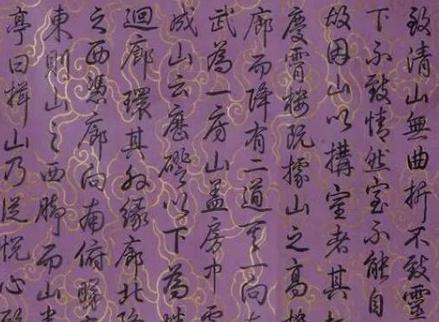 致清山無曲折不致靈
下不致情然室不能自
故因山以構室者其
慶霄樓既據山之高
廊而降有二道一向南
武為一房山蓋房中
成山云歷磴以下為蟠
迴廊環其外緣廊北降
之西憑廊向南俯睇
東則山之西腳而山半
亭曰揖山乃從悅心殿